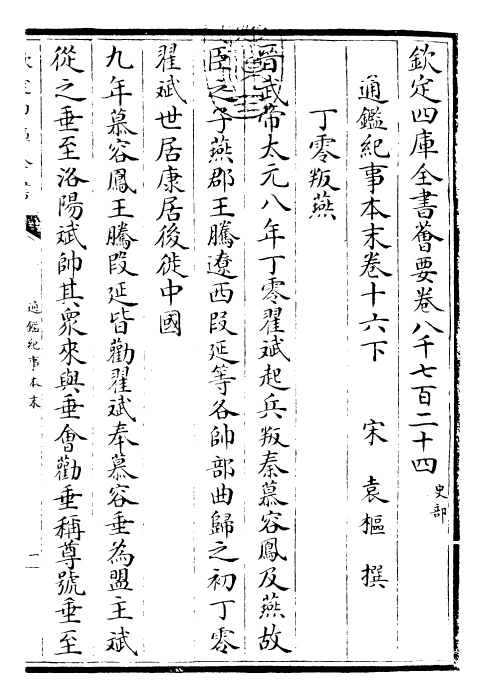 欽定四庫全書薈要卷八千七百二十四
史部
通鑑紀事本末卷十六下　　宋　袁樞　撰
丁零叛燕
晉武帝太元八年丁零翟斌起兵叛秦慕容鳳及燕故
臣之子燕郡王騰遼西段延等各帥部曲歸之初丁零
翟斌世居康居後徙中國
九年慕容鳳王騰段延皆勸翟斌奉慕容垂為盟主斌
從之垂至洛陽斌帥其衆來與垂會勸垂稱尊號垂至
通鑑紀事本末
一